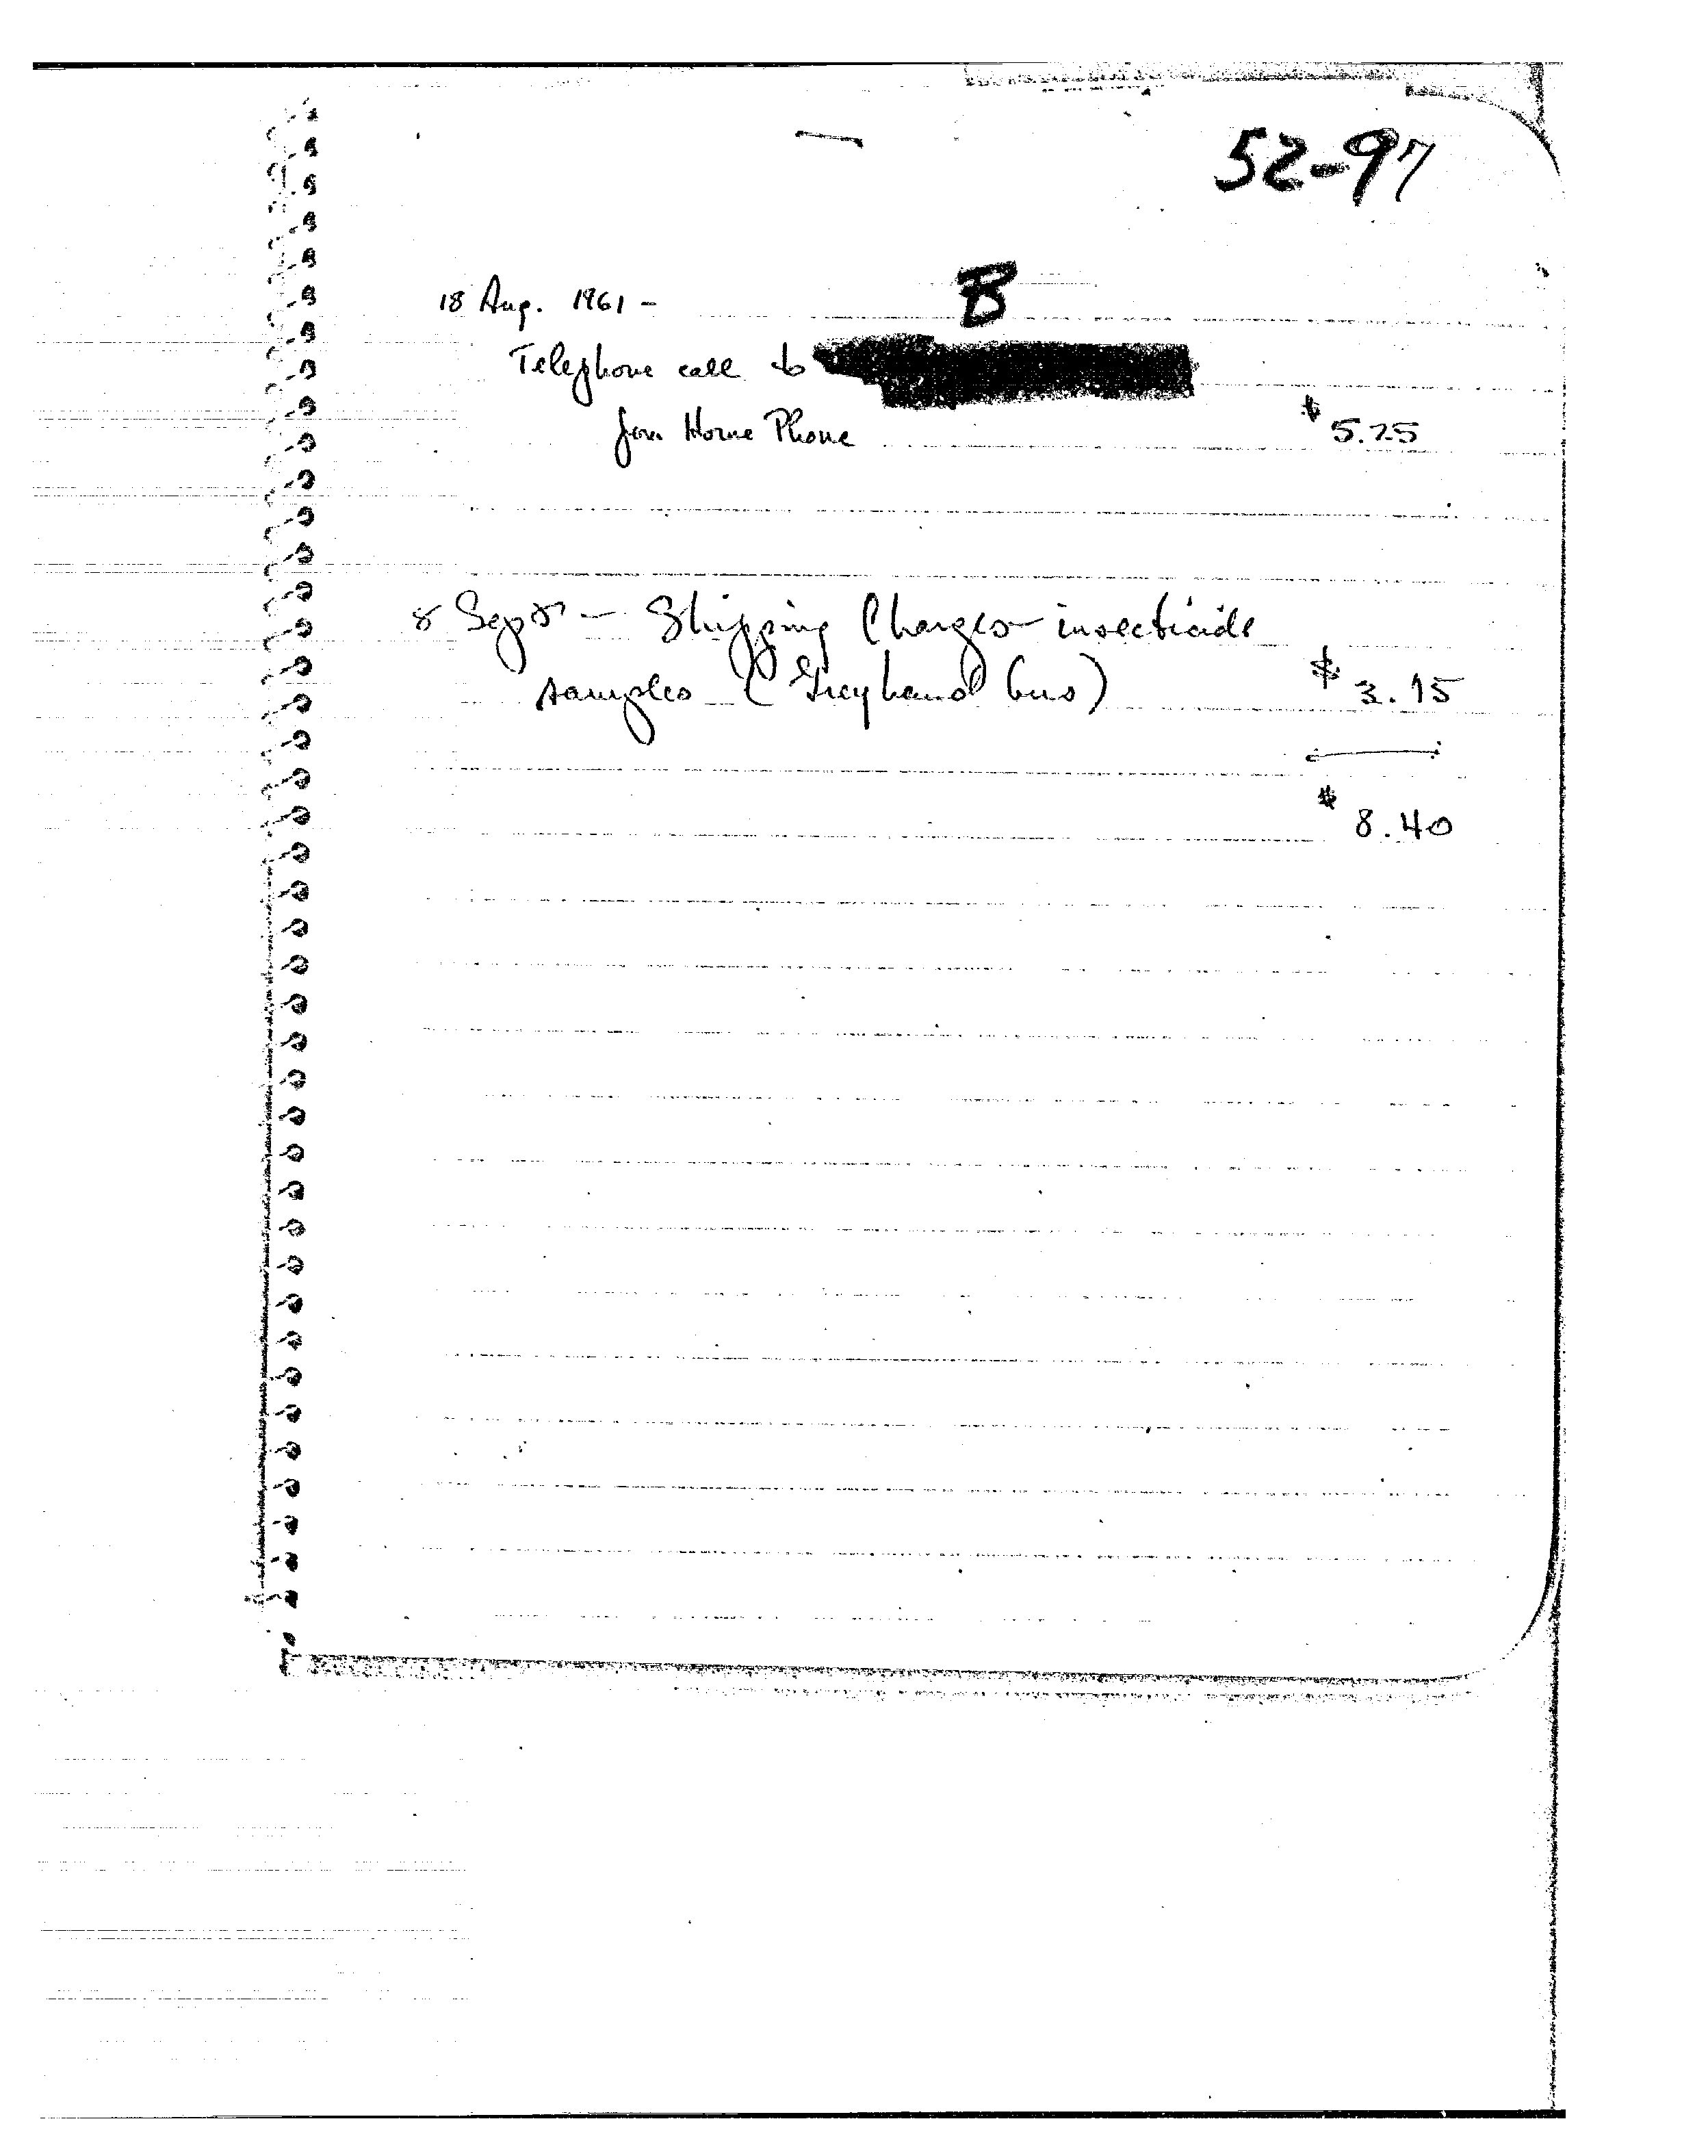 52-97
B
18 Aug. 1961 -
Telephone call to
from Home Phone $ 5.25
8 Sept - Shipping Charges - insecticide
samples (Greyhound bus) $ 3.15
$ 8.40